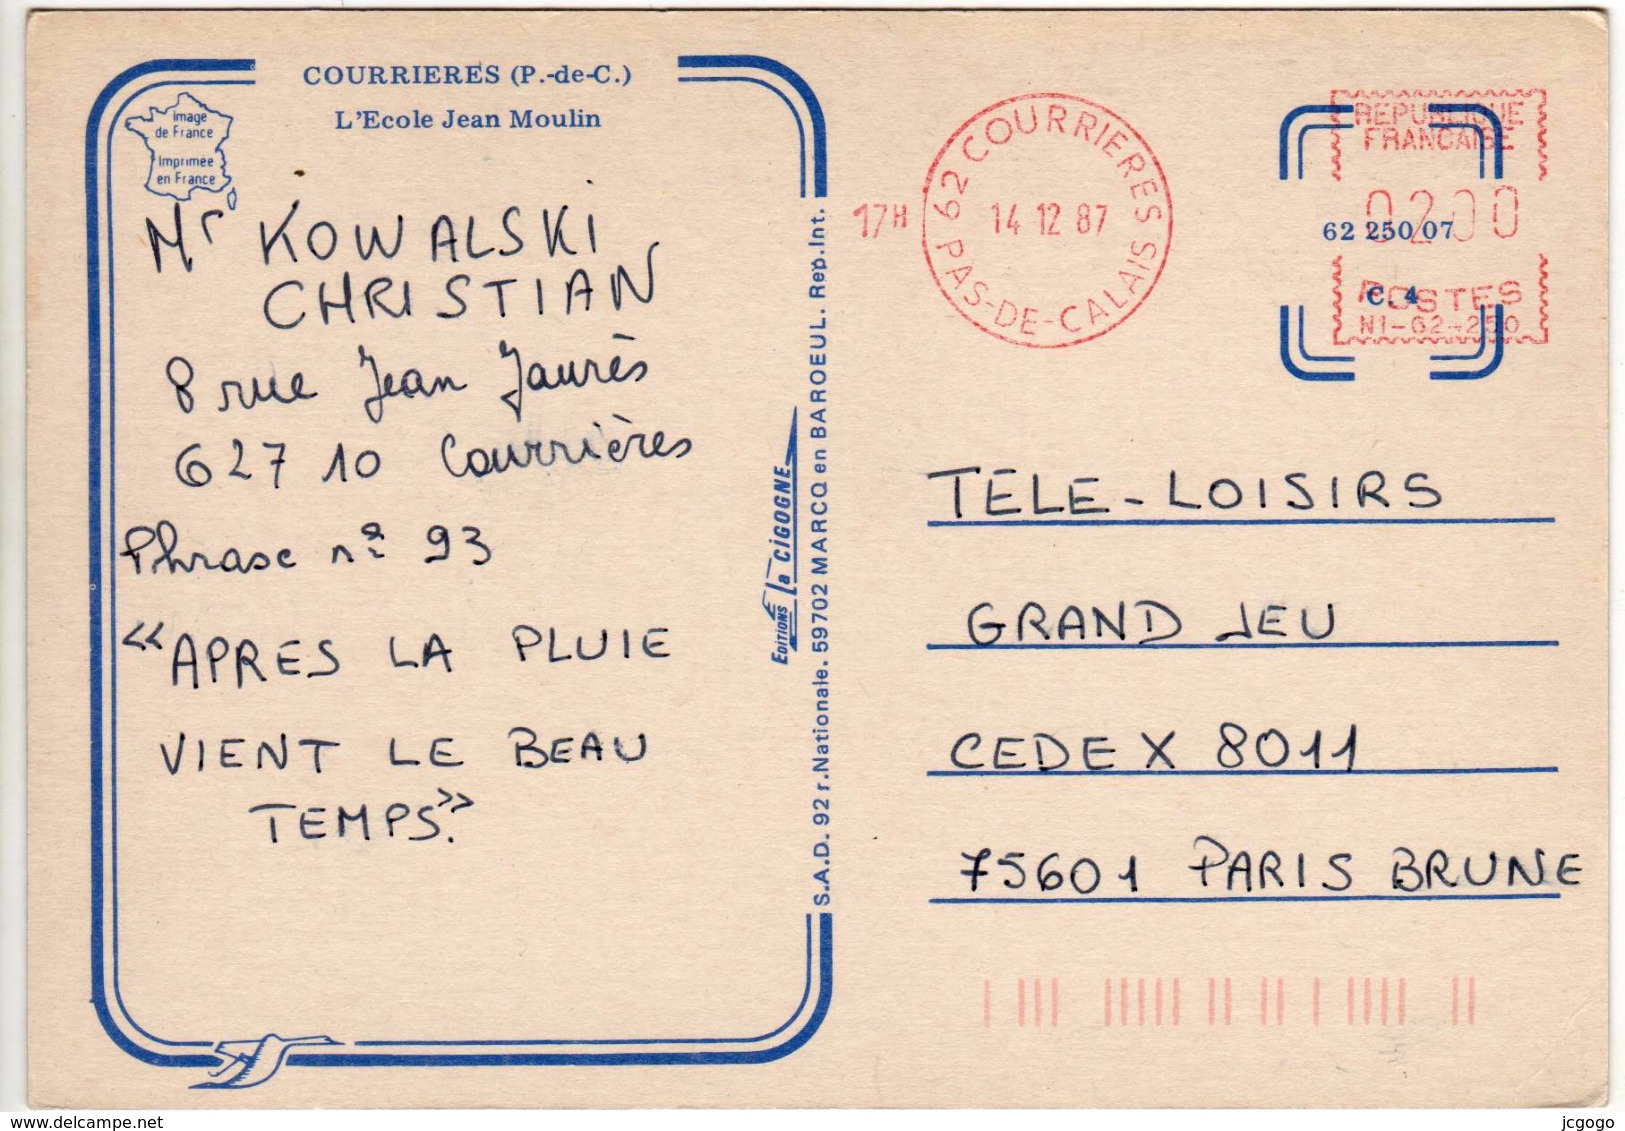 COURRIERES (P.-de-C.)
L'Ecole Jean Moulin
Image
de France
Imprimée
en France
Mr KOWALSKI
CHRISTIAN
8 rue Jean Jaurès
62710 Courrières
Phrase n° 93
"APRES LA PLUIE
VIENT LE BEAU
TEMPS."
EDITIONS la CIGOGNE
S.A.D. 92 r. Nationale. 59702 MARCQ en BAROEUL. Rep. Int.
17H
62 COURRIERES
14 12 87
PAS-DE-CALAIS
REPUBLIQUE
FRANCAISE
0200
62 250 07
POSTES
C. 4
N1-62-250
TELE-LOISIRS
GRAND JEU
CEDEX 8011
75601 PARIS BRUNE
delcampe.net
jcgogo